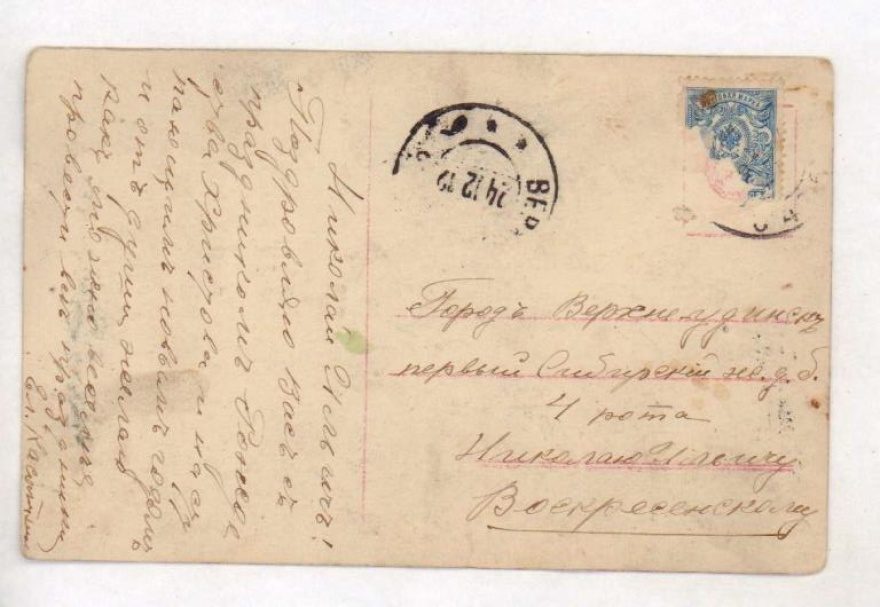 Николай Ильичъ!
Поздровляю Васъ съ
праздникомъ Рожде
ства Христова и нас
тающимъ новымъ годомъ
и отъ души желаю
какъ можно веселѣе
провести вам праздники
Ел.
24 12 1
ВЕР
Городъ Верхнеудинскъ
первый Сибирский же.д.б.
4 рота
Николаю Ильичу
Воскресенскому